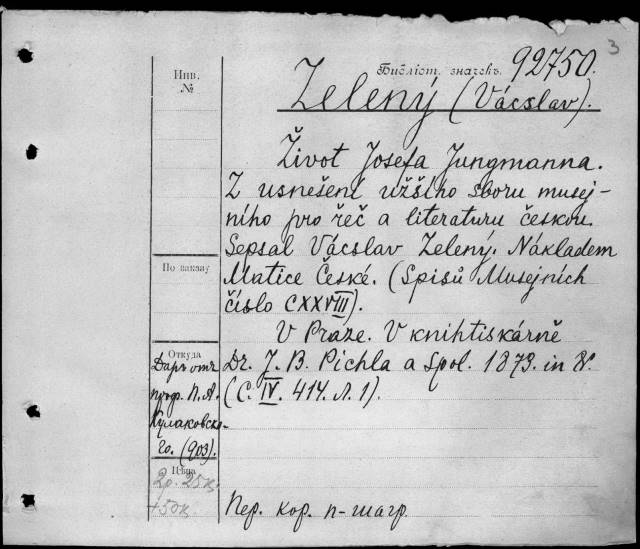 3
Библіот. значекъ 92750.
Инв.
№
Zelený (Vácslav).
Život Josefa Jungmanna.
Z usnešení užšího sboru musej-
ního pro řeč a literaturu českou.
Sepsal Vácslav Zelený. Nákladem
Matice České. (Spisů Musejních
číslo CXXVIII).
V Práze. V knihtiskárně
Dr. J. B. Pichla a spol. 1873. in 8°.
(C. IV. 414. Л. 1).
По заказу
Откуда
Даръ отъ
проф. П. А.
Кулаковска-
го. (903).
Цѣна
2р. 25к.
+50к
Пер. кор. п-шагр.